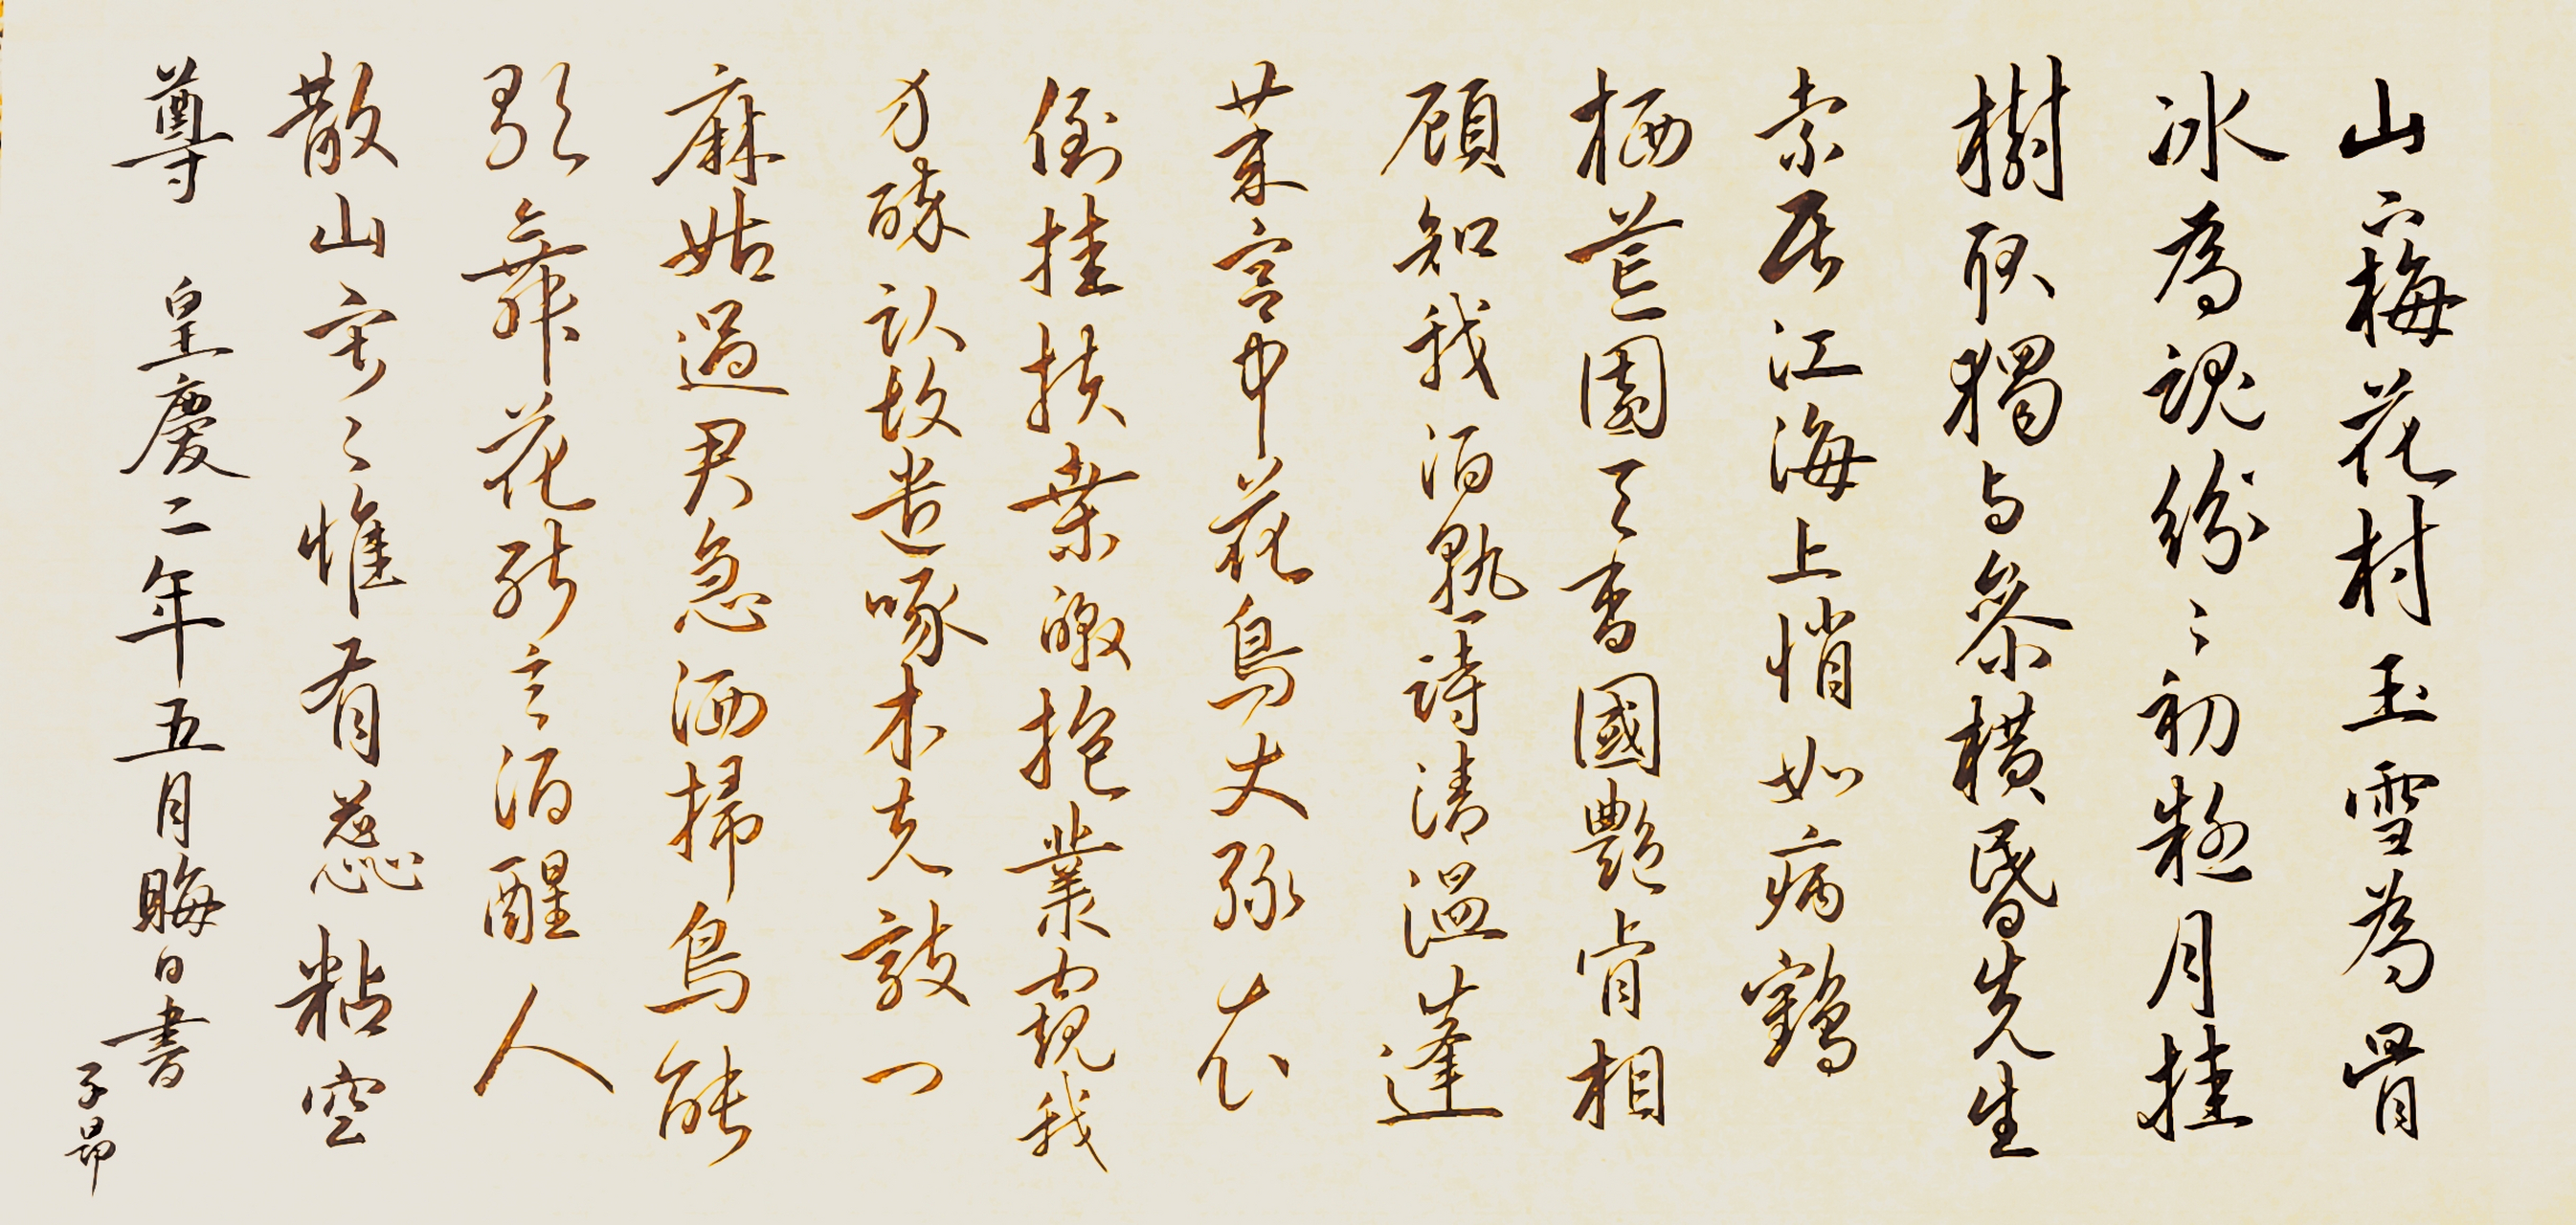 山下梅花村玉雪為骨
冰為魂紛〻初疑月挂
樹耿獨与參橫昏先生
索居江海上悄如病鶴
栖荒園天香國艷肯相
顧知我酒熟詩清溫蓬
萊宮中花鳥使綠衣
倒挂扶桑暾抱叢窺我
方醉臥故遣啄木先敲门
麻姑過君急洒掃鳥能
歌舞花能言酒醒人
散山寂〻惟有蕊粘空
尊 皇慶二年五月晦日書
子昂